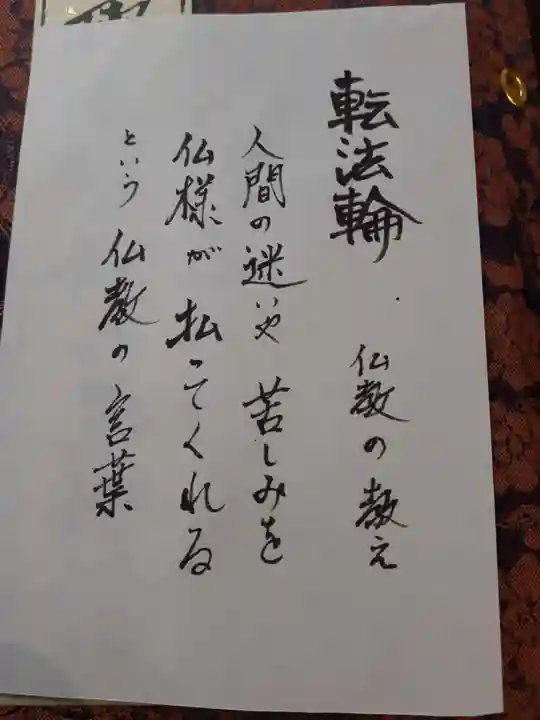 転法輪
仏教の教え
人間の迷いや苦しみを
仏様が払ってくれる
という仏教の言葉